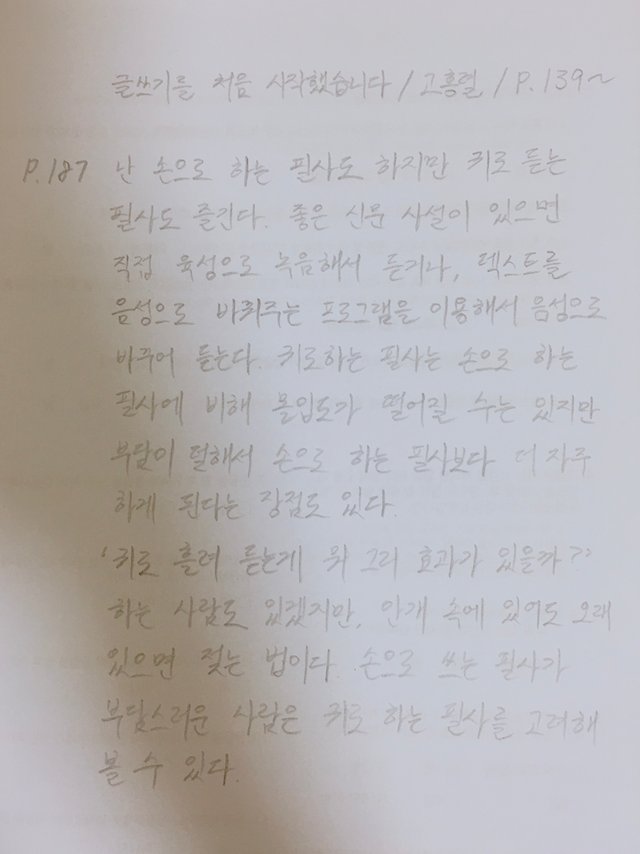 글쓰기를 처음 시작했습니다 / 고홍렬 / P.139~
P.187 난 손으로 하는 필사도 하지만 귀로 듣는
필사도 즐긴다. 좋은 신문 사설이 있으면
직접 육성으로 녹음해서 듣거나, 텍스트를
음성으로 바꿔주는 프로그램을 이용해서 음성으로
바꾸어 듣는다. 귀로하는 필사는 손으로 하는
필사에 비해 몰입도가 떨어질 수는 있지만
부담이 덜해서 손으로 하는 필사보다 더 자주
하게 된다는 장점도 있다.
'귀로 흘려 듣는게 뭐 그리 효과가 있을까?'
하는 사람도 있겠지만, 안개 속에 있어도 오래
있으면 젖는 법이다. 손으로 쓰는 필사가
부담스러운 사람은 귀로 하는 필사를 고려해
볼 수 있다.